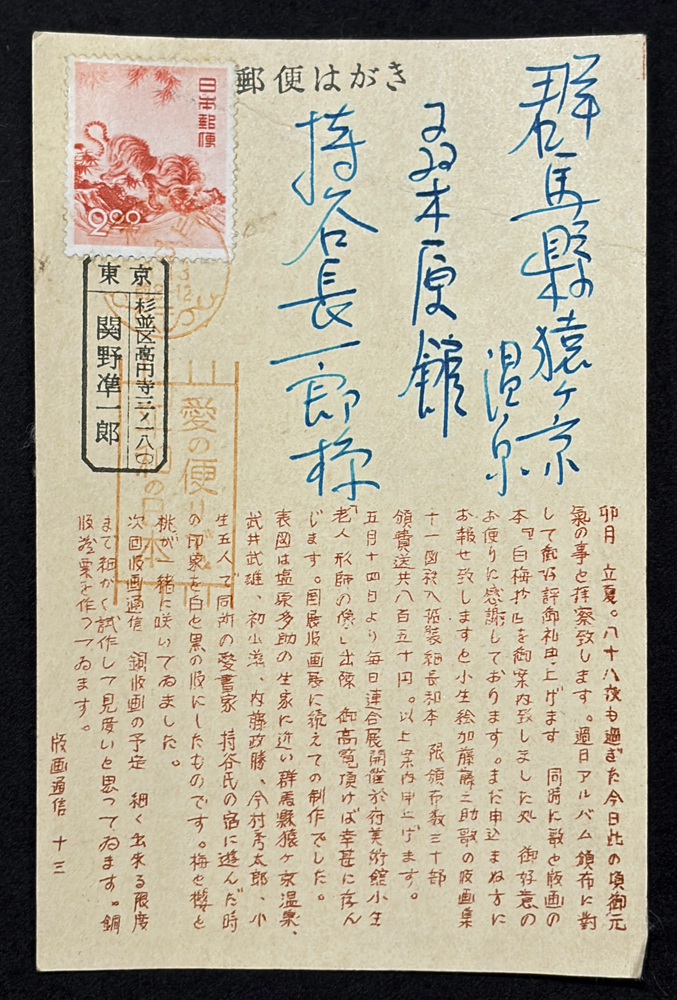 郵便はがき
日本郵便
2.00
群馬縣猿ヶ京
温泉
木屋館
持谷長一郎様
東京
杉並区高円寺
関野凖一郎
愛の便り
の日本
卯月 立夏。八十八夜も過ぎた今日此の頃御元
氣の事と拝察致します。過日アルバム頒布に對
して御好評御礼申上げます 同時に歌と版画の
本『白梅抄』を御案内致しました処 御好意の
お便りに感謝しております。まだ申込まぬ方に
お報せ致しますと小生絵加藤藤之助歌の版画集
十一図秩入 装細長和本 限頒布数三十部
領費送共八百五十円。以上案内申上げます。
五月十四日より毎日連合展開催於府美術館小生
「老人形師の像」出陳 御高覧頂けば幸甚に存ん
じます。国展版画展に続えての制作でした。
表図は塩原多助の生家に近い群馬縣猿ヶ京温泉、
武井武雄、初山滋、内藤政勝、今村秀太郎、小
生五人で同所の愛書家 持谷氏の宿に遊んだ時
の印象を白と黒の版にしたものです。梅と櫻と
桃が一緒に咲いてゐました。
次回版画通信 銅版画の予定 細く出来る限度
まで細かく試作して見度いと思つてゐます。銅
版蔵票を作つてゐます。
版画通信 十三